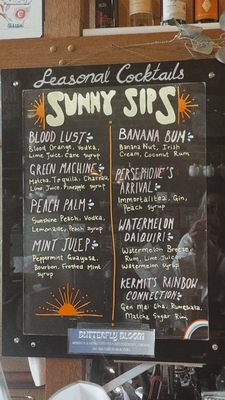 Seasonal Cocktails
SUNNY SIPS
BLOOD LUST
Blood Orange, Vodka,
Lime Juice, Cane syrup
GREEN MACHINE
Matcha, Tequila,
Lime Juice, Pineapple syrup
PEACH PALM
Sunshine Peach, Vodka
Lemonade, Peach syrup
MINT JULEP
Peppermint Guayusa,
Bourbon, Frosted Mint
syrup
BANANA BUM
Banana Nut, Irish
Cream, Coconut Rum
PERSEPHONE'S
ARRIVAL
Immortalitea, Gin,
Peach syrup
WATERMELON
DAIQUIRI
Watermelon Breeze,
Rum, Lime Juice
Watermelon syrup
KERMIT'S RAINBOW
CONNECTION
Gen Mai Cha, Rumchata,
Matcha Sugar Rim
BUTTERFLY BLOOM